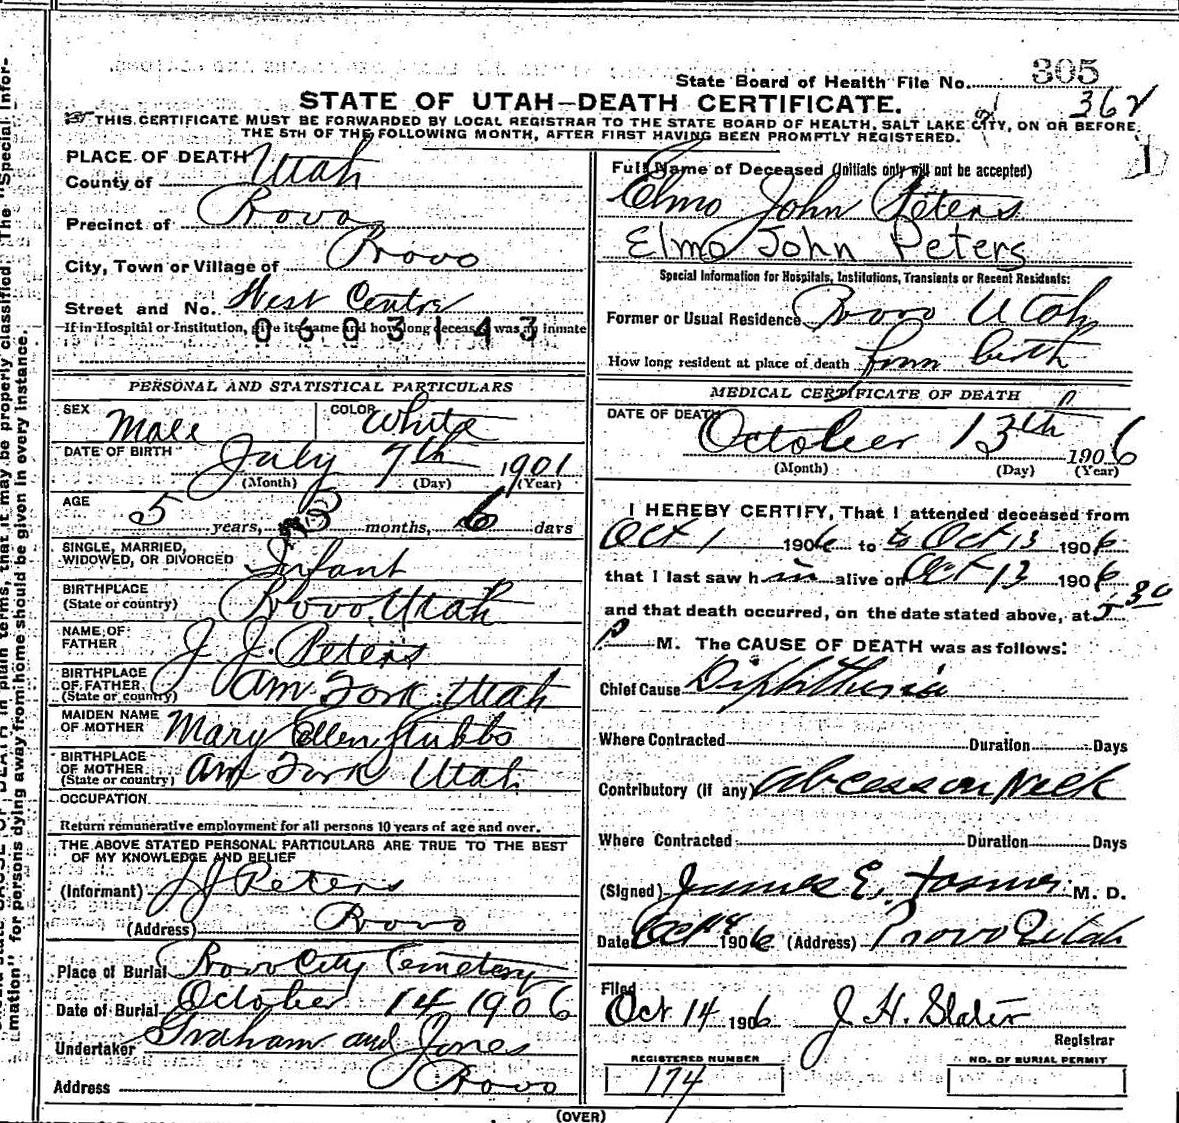 State Board of Health File No. 305
STATE OF UTAH—DEATH CERTIFICATE.
362
THIS CERTIFICATE MUST BE FORWARDED BY LOCAL REGISTRAR TO THE STATE BOARD OF HEALTH, SALT LAKE CITY, ON OR BEFORE
THE 5TH OF THE FOLLOWING MONTH, AFTER FIRST HAVING BEEN PROMPTLY REGISTERED.
PLACE OF DEATH
County of Utah
Precinct of Provo
City, Town or Village of Provo
Street and No. West Centre
If in Hospital or Institution, give its name and how long deceased was an inmate
0603143
PERSONAL AND STATISTICAL PARTICULARS
SEX Male COLOR White
DATE OF BIRTH July 7th 1901
(Month) (Day) (Year)
AGE 5 years, 3 months, 6 days
SINGLE, MARRIED,
WIDOWED, OR DIVORCED Infant
BIRTHPLACE
(State or country) Provo, Utah
NAME OF
FATHER J. J. Peters
BIRTHPLACE
OF FATHER
(State or country) Am Fork Utah
MAIDEN NAME
OF MOTHER Mary Ellen Stubbs
BIRTHPLACE
OF MOTHER
(State or country) Am Fork Utah
OCCUPATION
Return remunerative employment for all persons 10 years of age and over.
THE ABOVE STATED PERSONAL PARTICULARS ARE TRUE TO THE BEST
OF MY KNOWLEDGE AND BELIEF
(Informant) J J Peters
(Address) Provo
Place of Burial Provo City Cemetery
Date of Burial October 14 1906
Undertaker Graham and Jones
Address Provo
Full Name of Deceased (Initials only will not be accepted)
Elmo John Peters
Elmo John Peters
Special Information for Hospitals, Institutions, Transients or Recent Residents:
Former or Usual Residence Provo Utah
How long resident at place of death from birth
MEDICAL CERTIFICATE OF DEATH
DATE OF DEATH October 13th 1906
(Month) (Day) (Year)
I HEREBY CERTIFY, That I attended deceased from
Oct 1 1906 to to Oct 13 1906
that I last saw h im alive on Oct 13 1906
and that death occurred, on the date stated above, at 5 30
P M. The CAUSE OF DEATH was as follows:
Chief Cause Diphtheria
Where Contracted Duration Days
Contributory (if any) abcess on Neck
Where Contracted Duration Days
(Signed) James E. M. D.
Date Oct 14 1906 (Address) Provo Utah
Filed
Oct 14 1906 J. H. Slater
Registrar
REGISTERED NUMBER
174
NO. OF BURIAL PERMIT
(OVER)
CAUSE OF DEATH in plain terms, that it may be properly classified. The "Special Infor-
mation" for persons dying away from home should be given in every instance.